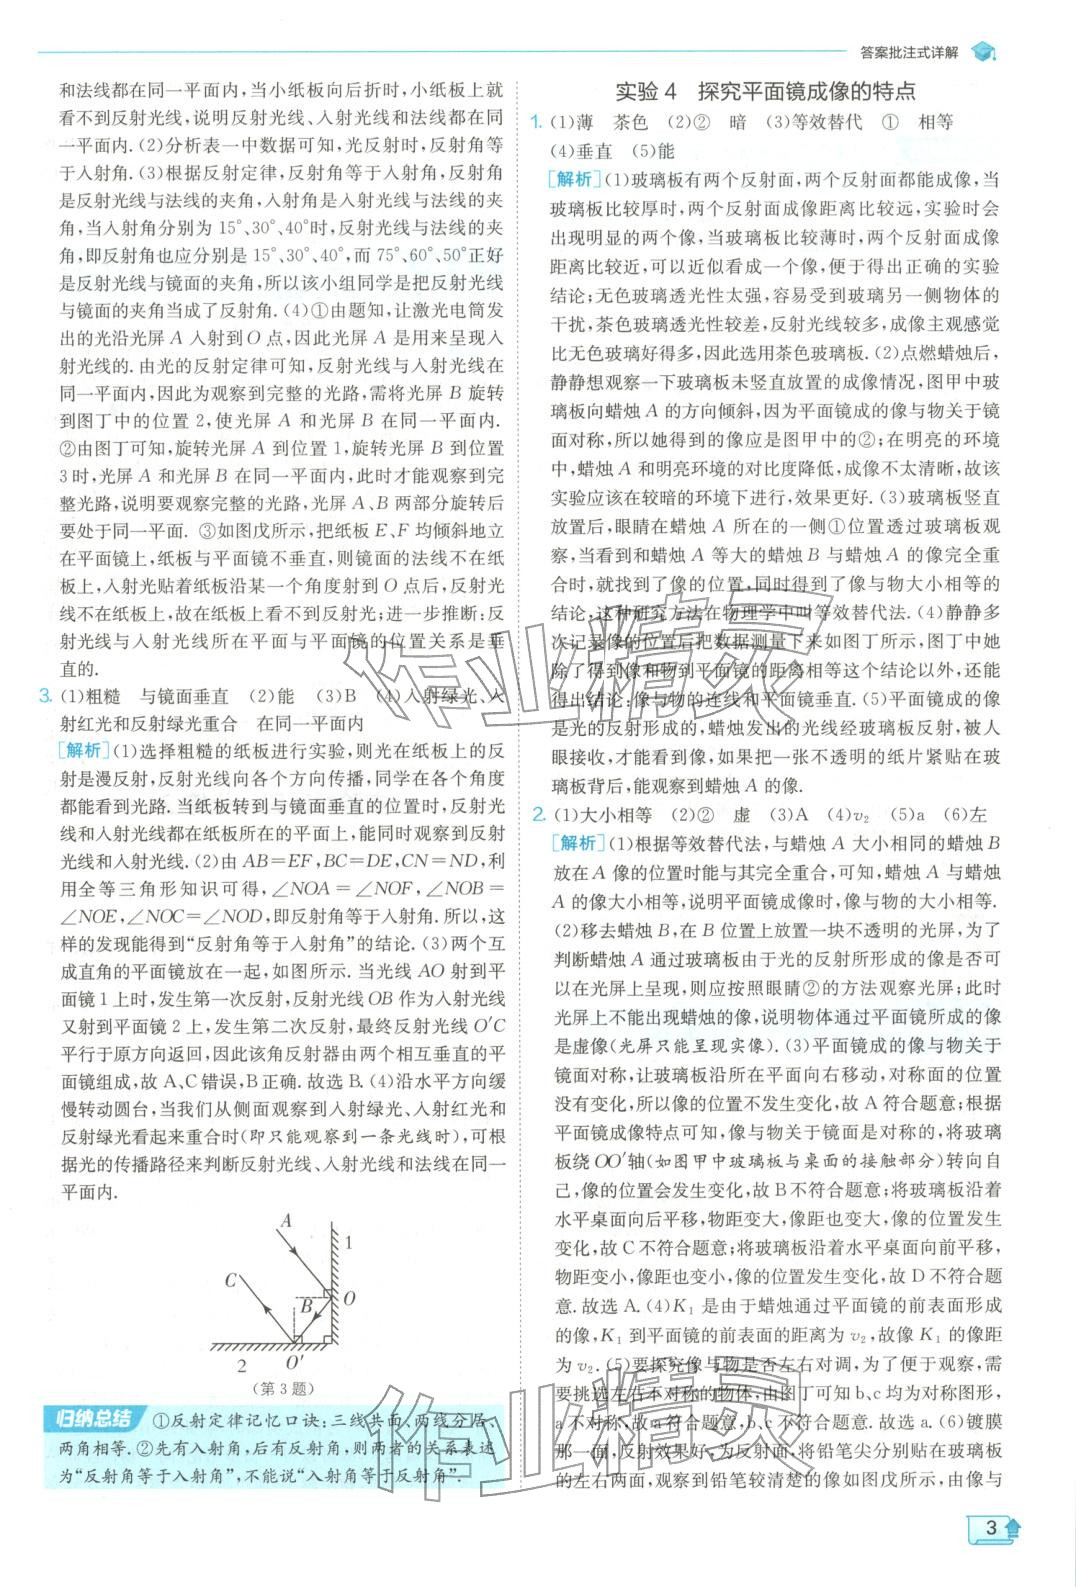 答案批注式详解
和法线都在同一平面内,当小纸板向后折时,小纸板上就
看不到反射光线,说明反射光线、入射光线和法线都在同
一平面内.(2)分析表一中数据可知,光反射时,反射角等
于入射角.(3)根据反射定律,反射角等于入射角,反射角
是反射光线与法线的夹角,入射角是入射光线与法线的夹
角,当入射角分别为 15°、30°、40°时,反射光线与法线的夹
角,即反射角也应分别是 15°、30°、40°,而 75°、60°、50°正好
是反射光线与镜面的夹角,所以该小组同学是把反射光线
与镜面的夹角当成了反射角.(4)①由题知,让激光电筒发
出的光沿光屏 A 入射到 O 点,因此光屏 A 是用来呈现入
射光线的. 由光的反射定律可知,反射光线与入射光线在
同一平面内,因此为观察到完整的光路,需将光屏 B 旋转
到图丁中的位置 2,使光屏 A 和光屏 B 在同一平面内.
②由图丁可知,旋转光屏 A 到位置 1,旋转光屏 B 到位置
3 时,光屏 A 和光屏 B 在同一平面内,此时才能观察到完
整光路,说明要观察完整的光路,光屏 A、B 两部分旋转后
要处于同一平面. ③如图戊所示,把纸板 E、F 均倾斜地立
在平面镜上,纸板与平面镜不垂直,则镜面的法线不在纸
板上,入射光贴着纸板沿某一个角度射到 O 点后,反射光
线不在纸板上,故在纸板上看不到反射光;进一步推断:反
射光线与入射光线所在平面与平面镜的位置关系是垂
直的.
3. (1)粗糙 与镜面垂直 (2)能 (3)B (4)入射绿光、入
射红光和反射绿光重合 在同一平面内
[解析](1)选择粗糙的纸板进行实验,则光在纸板上的反
射是漫反射,反射光线向各个方向传播,同学在各个角度
都能看到光路. 当纸板转到与镜面垂直的位置时,反射光
线和入射光线都在纸板所在的平面上,能同时观察到反射
光线和入射光线.(2)由 AB=EF,BC=DE,CN=ND,利
用全等三角形知识可得,∠NOA=∠NOF,∠NOB=
∠NOE,∠NOC=∠NOD,即反射角等于入射角. 所以,这
样的发现能得到“反射角等于入射角”的结论.(3)两个互
成直角的平面镜放在一起,如图所示. 当光线 AO 射到平
面镜 1 上时,发生第一次反射,反射光线 OB 作为入射光线
又射到平面镜 2 上,发生第二次反射,最终反射光线 O′C
平行于原方向返回,因此该角反射器由两个相互垂直的平
面镜组成,故 A、C 错误,B 正确. 故选 B.(4)沿水平方向缓
慢转动圆台,当我们从侧面观察到入射绿光、入射红光和
反射绿光看起来重合时(即只能观察到一条光线时),可根
据光的传播路径来判断反射光线、入射光线和法线在同一
平面内.
A
1
C
B
O
2
O′
(第 3 题)
归纳总结 ①反射定律记忆口诀:三线共面、两线分居、
两角相等.②先有入射角,后有反射角,则两者的关系表述
为“反射角等于入射角”,不能说“入射角等于反射角”.
实验 4 探究平面镜成像的特点
1. (1)薄 茶色 (2)② 暗 (3)等效替代 ① 相等
(4)垂直 (5)能
[解析](1)玻璃板有两个反射面,两个反射面都能成像,当
玻璃板比较厚时,两个反射面成像距离比较远,实验时会
出现明显的两个像,当玻璃板比较薄时,两个反射面成像
距离比较近,可以近似看成一个像,便于得出正确的实验
结论;无色玻璃透光性太强,容易受到玻璃另一侧物体的
干扰,茶色玻璃透光性较差,反射光线较多,成像主观感觉
比无色玻璃好得多,因此选用茶色玻璃板.(2)点燃蜡烛后,
静静想观察一下玻璃板未竖直放置的成像情况,图甲中玻
璃板向蜡烛 A 的方向倾斜,因为平面镜成的像与物关于镜
面对称,所以她得到的像应是图甲中的②;在明亮的环境
中,蜡烛 A 和明亮环境的对比度降低,成像不太清晰,故该
实验应该在较暗的环境下进行,效果更好.(3)玻璃板竖直
放置后,眼睛在蜡烛 A 所在的一侧①位置透过玻璃板观
察,当看到和蜡烛 A 等大的蜡烛 B 与蜡烛 A 的像完全重
合时,就找到了像的位置,同时得到了像与物大小相等的
结论,这种研究方法在物理学中叫等效替代法.(4)静静多
次记录像的位置后把数据测量下来如图丁所示,图丁中她
除了得到像和物到平面镜的距离相等这个结论以外,还能
得出结论:像与物的连线和平面镜垂直.(5)平面镜成的像
是光的反射形成的,蜡烛发出的光线经玻璃板反射,被人
眼接收,才能看到像,如果把一张不透明的纸片紧贴在玻
璃板背后,能观察到蜡烛 A 的像.
2. (1)大小相等 (2)② 虚 (3)A (4)v₂ (5)a (6)左
[解析](1)根据等效替代法,与蜡烛 A 大小相同的蜡烛 B
放在 A 像的位置时能与其完全重合,可知,蜡烛 A 与蜡烛
A 的像大小相等,说明平面镜成像时,像与物的大小相等.
(2)移去蜡烛 B,在 B 位置上放置一块不透明的光屏,为了
判断蜡烛 A 通过玻璃板由于光的反射所形成的像是否可
以在光屏上呈现,则应按照眼睛②的方法观察光屏;此时
光屏上不能出现蜡烛的像,说明物体通过平面镜所成的像
是虚像(光屏只能呈现实像).(3)平面镜成的像与物关于
镜面对称,让玻璃板沿所在平面向右移动,对称面的位置
没有变化,所以像的位置不发生变化,故 A 符合题意;根据
平面镜成像特点可知,像与物关于镜面是对称的,将玻璃
板绕 OO′轴(如图甲中玻璃板与桌面的接触部分)转向自
己,像的位置会发生变化,故 B 不符合题意;将玻璃板沿着
水平桌面向后平移,物距变大,像距也变大,像的位置发生
变化,故 C 不符合题意;将玻璃板沿着水平桌面向前平移,
物距变小,像距也变小,像的位置发生变化,故 D 不符合题
意. 故选 A.(4)K₁ 是由于蜡烛通过平面镜的前表面形成
的像,K₁ 到平面镜的前表面的距离为 v₂,故像 K₁ 的像距
为 v₂.(5)要探究像与物是否左右对调,为了便于观察,需
要挑选左右不对称的物体,由图丁可知 b、c 均为对称图形,
a 不对称,故 a 符合题意,b、c 不符合题意. 故选 a.(6)镀膜
那一面,反射效果好,为反射面,将铅笔尖分别贴在玻璃板
的左右两面,观察到铅笔较清楚的像如图戊所示,由像与
3
作业精灵
作业精灵